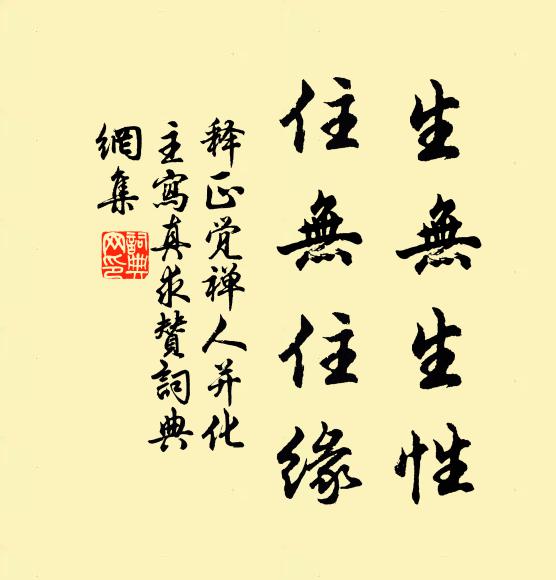 生無生性
住無住缘
释正觉禅人并化
主寫真求賛詞典
網集
詞典網印